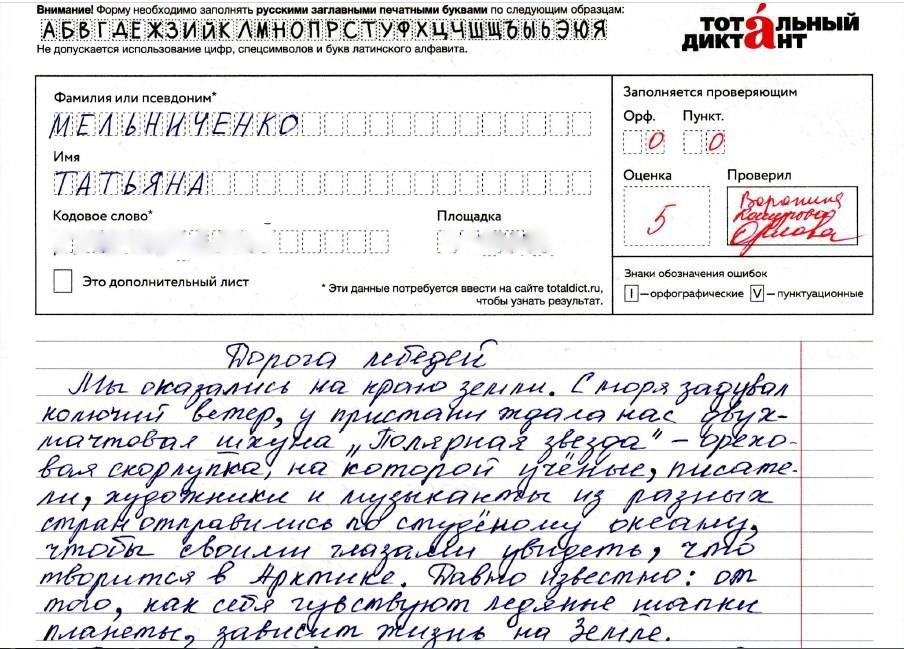 Внимание! Форму необходимо заполнять русскими заглавными печатными буквами по следующим образцам:
АБВГДЕЖЗИЙКЛМНОПРСТУФХЦЧШЩЪЫЬЭЮЯ
Не допускается использование цифр, спецсимволов и букв латинского алфавита.
тотальный
диктант
Фамилия или псевдоним*
МЕЛЬНИЧЕНКО
Имя
ТАТЬЯНА
Кодовое слово*
Площадка
Это дополнительный лист
* Эти данные потребуется ввести на сайте totaldict.ru,
чтобы узнать результат.
Заполняется проверяющим
Орф. Пункт.
0 0
Оценка Проверил
5
Орлова
Знаки обозначения ошибок
I —орфографические V —пунктуационные
Дорога лебедей
Мы оказались на краю земли. С моря задувал
колючий ветер, у пристани ждала нас двух-
мачтовая шхуна „Полярная звезда" – орехо-
вая скорлупка, на которой учёные, писате-
ли, художники и музыканты из разных
стран отправились по студёному океану,
чтобы своими глазами увидеть, что
творится в Арктике. Давно известно: от
того, как себя чувствуют ледяные шапки
планеты, зависит жизнь на Земле.